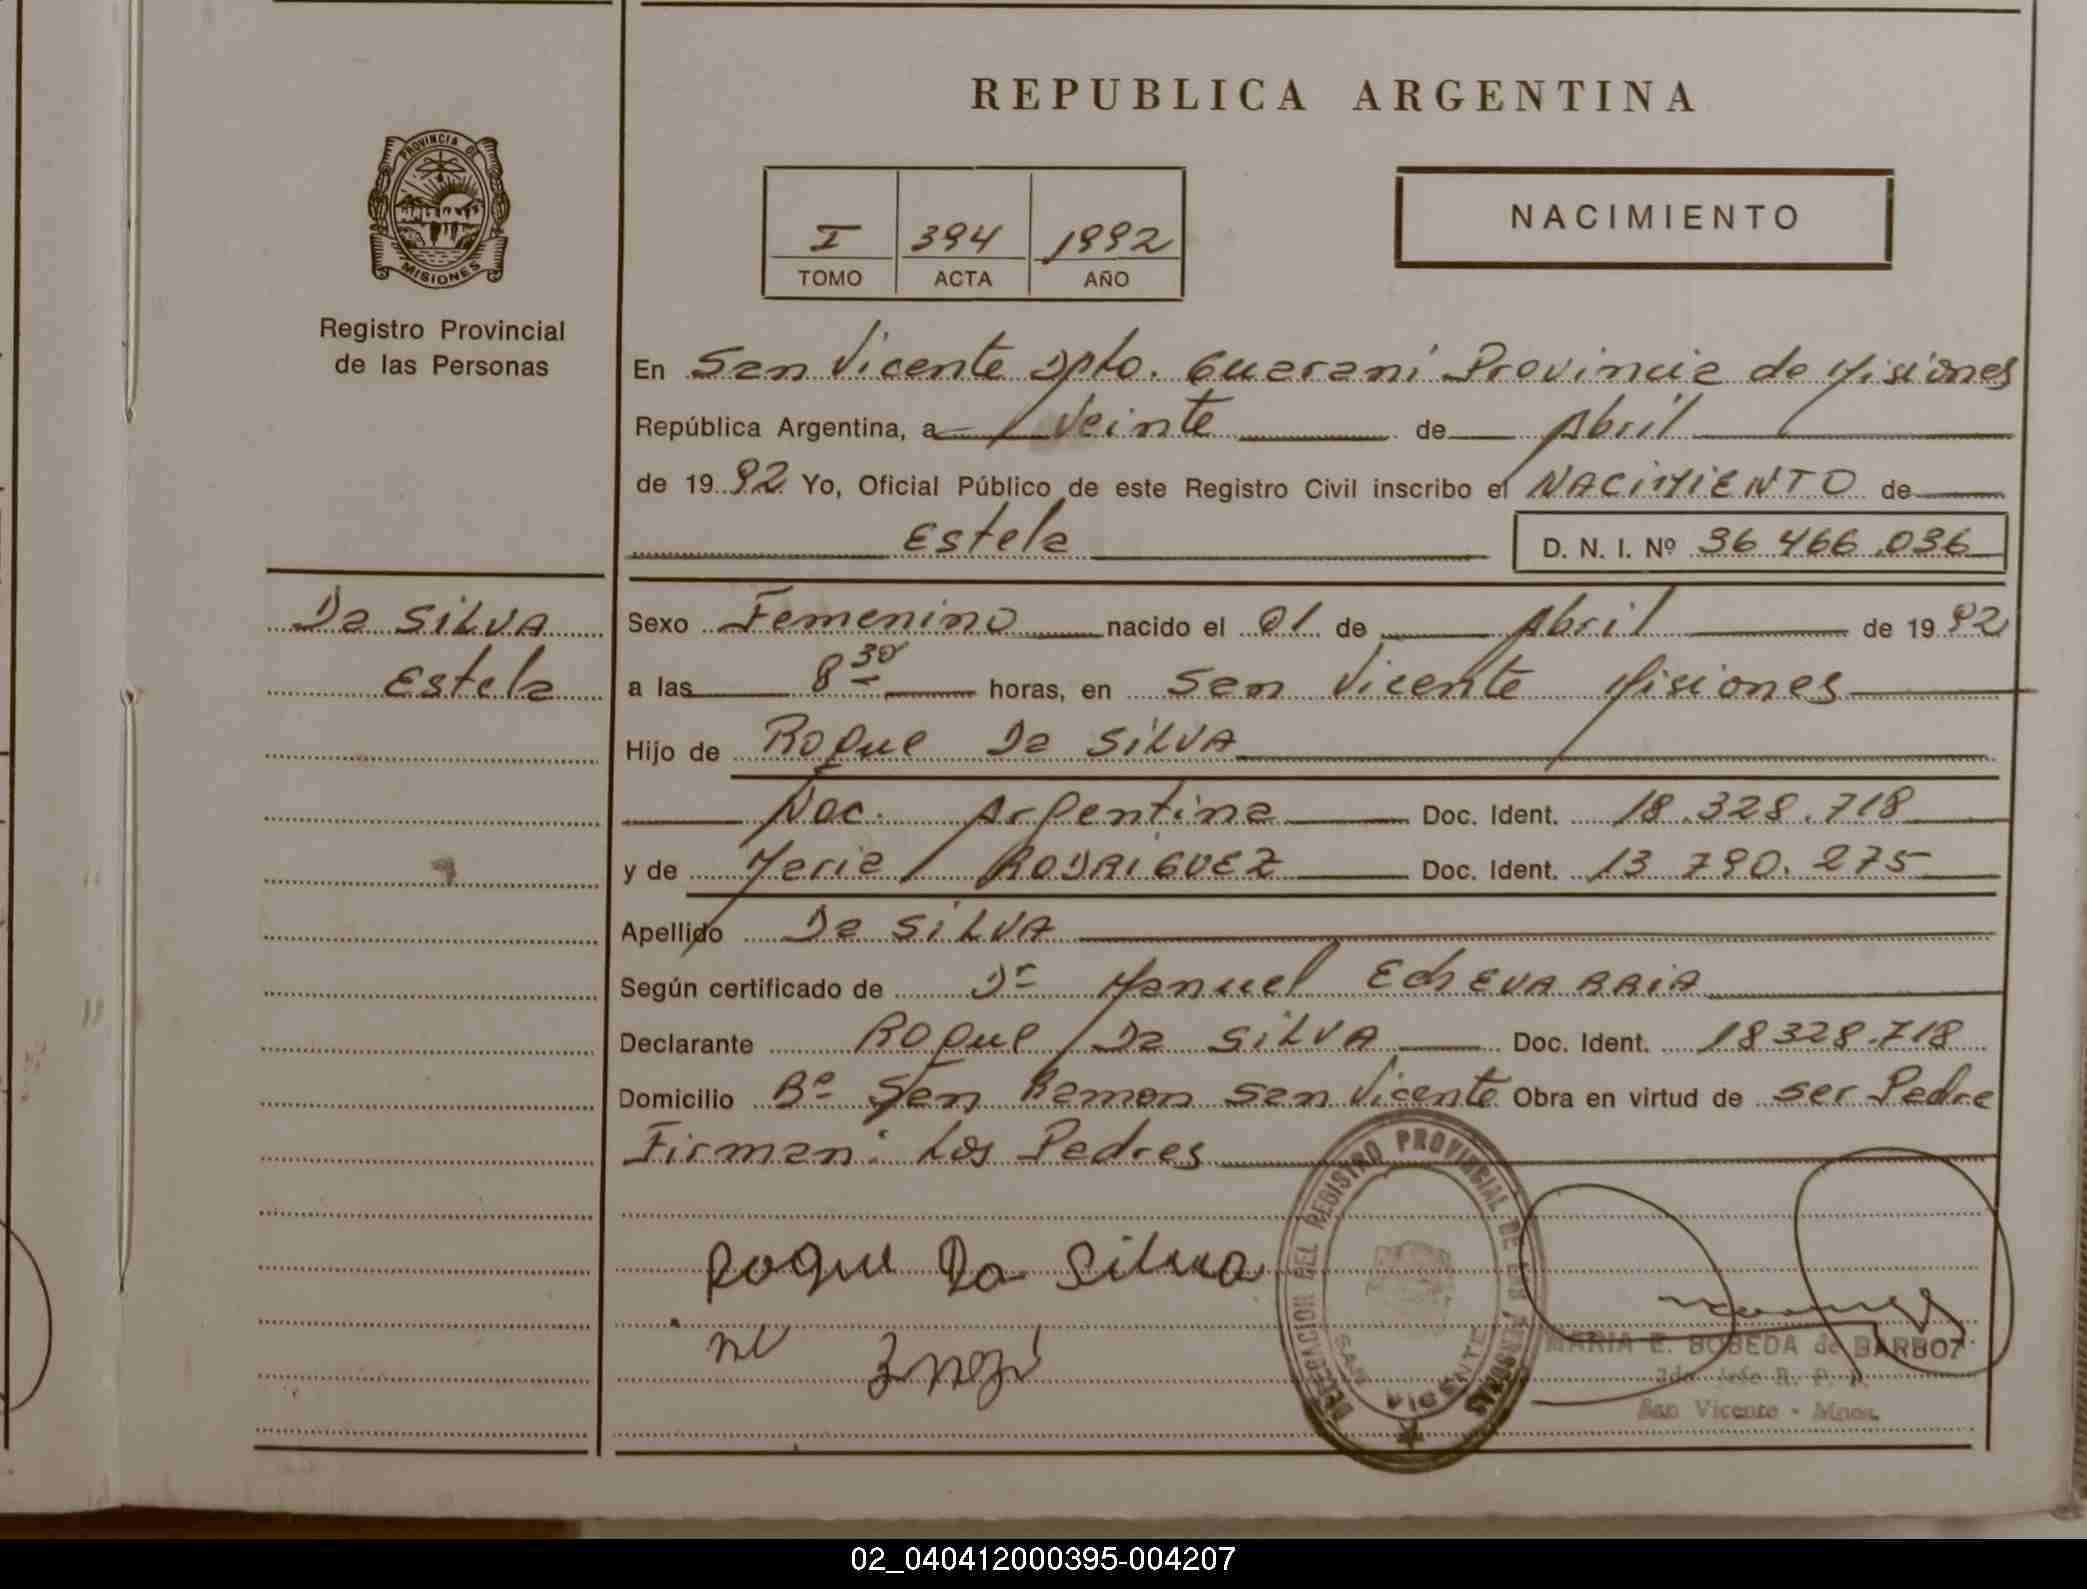 REPUBLICA ARGENTINA
PROVINCIA DE
MISIONES
Registro Provincial
de las Personas
I 394 1992
TOMO ACTA AÑO
NACIMIENTO
En San Vicente Dpto. Guarani Provincia de Misiones
República Argentina, a Veinte de Abril
de 1992 Yo, Oficial Público de este Registro Civil inscribo el NACIMIENTO de
Estela D. N. I. Nº 36 466.036
Da SILVA
Estela
Sexo Femenino nacido el 01 de Abril de 1992
a las 8 30 horas, en San Vicente Misiones
Hijo de Roque Da SILVA
Nac. Argentina Doc. Ident. 18.328.718
y de Maria RODRIGUEZ Doc. Ident. 13 790.275
Apellido Da SILVA
Según certificado de Dr Manuel EchEVARRIA
Declarante Roque Da SILVA Doc. Ident. 18 328.718
Domicilio Bº San Ramon San Vicente Obra en virtud de ser Padre
Firman: Los Padres
Roque Da Silva
DELEGACION DEL REGISTRO PROVINCIAL DE LAS PERSONAS
SAN VICENTE
MARIA E. BOBEDA de BARBOZ
2do Jefe R. P. P.
San Vicente - Mnes.
02_040412000395-004207